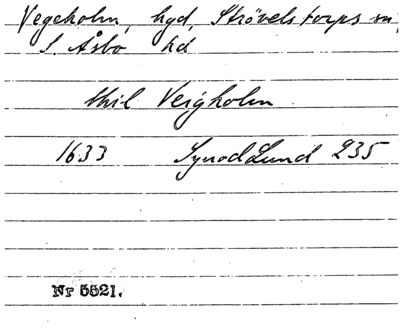 Vegeholm, hgd, Strövelstorps sn,
S. Åsbo hd
thil Veigholm
1633 SynodLund 235
Nr 5521.